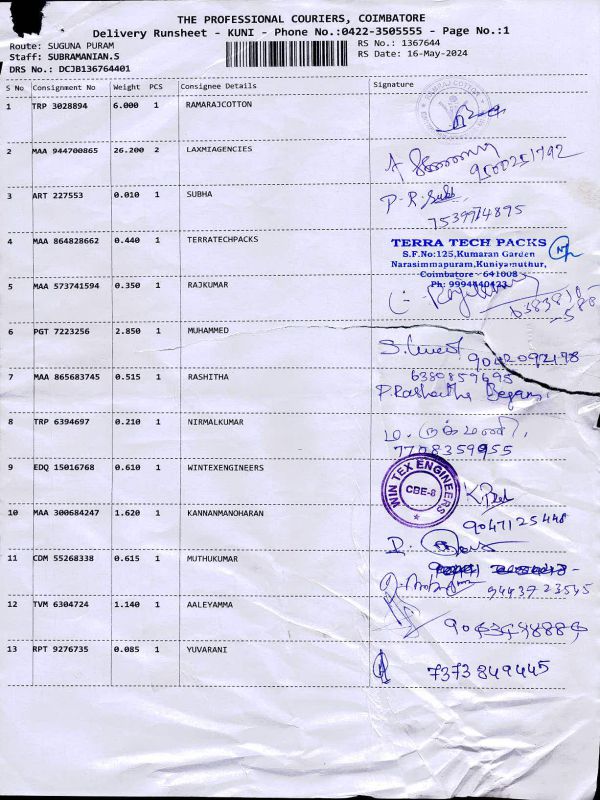 THE PROFESSIONAL COURIERS, COIMBATORE
Delivery Runsheet - KUNI - Phone No.:0422-3505555 - Page No.:1
Route: SUGUNA PURAM
RS No.: 1367644
Staff: SUBRAMANIAN.S
RS Date: 16-May-2024
DRS No.: DCJB136764401
S No Consignment No Weight PCS Consignee Details Signature
1 TRP 3028894 6.000 1 RAMARAJCOTTON
2 MAA 944700865 26.200 2 LAXMIAGENCIES
9500251792
3 ART 227553 0.010 1 SUBHA
P.R.
7539974895
4 MAA 864828662 0.440 1 TERRATECHPACKS
TERRA TECH PACKS
S.F.No:125,Kumaran Garden
Narasimmapuram,Kuniyamuthur,
Coimbatore - 641008
Ph: 9994440423
5 MAA 573741594 0.350 1 RAJKUMAR
6 PGT 7223256 2.850 1 MUHAMMED
9042092198
7 MAA 865683745 0.515 1 RASHITHA
6380859495
P.Rashitha Begam
8 TRP 6394697 0.210 1 NIRMALKUMAR
7708359955
9 EDQ 15016768 0.610 1 WINTEXENGINEERS
WIN TEX ENGINEERS
CBE-8
10 MAA 300684247 1.620 1 KANNANMANOHARAN
9047125448
11 CDM 55268338 0.615 1 MUTHUKUMAR
9443723545
12 TVM 6304724 1.140 1 AALEYAMMA
13 RPT 9276735 0.085 1 YUVARANI
7373849445